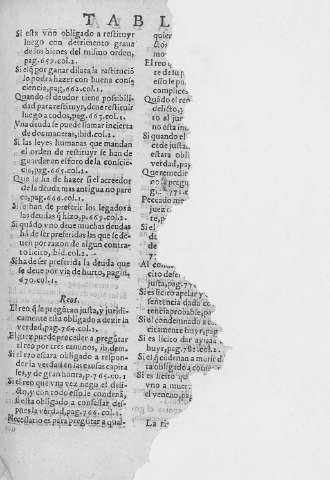 TABL
Si esta vno obligado a restituyr
luego con detrimento graue
de los bienes del mismo orden,
pag.659.col.2.
Si el q̃ por ganar dilata la restituciõ
lo podra hazer con buena cons
ciencia, pag.662.col.1.
Quando el deudor tiene possibili-
dad para restituyr, deue restituir
luego a todos, pag.667.col.1.
Vna deuda se puede llamar incierta
de dos maneras, ibid.col.2.
Si las leyes humanas que mandan
el orden de restituyr se han de
guardar en el foro de la consciẽ-
cia, pag.665.col.1.
Que se ha de hazer si el acreedor
de la deuda mas antigua no pare
ce, pag.
Si se han de preferir los legados a
las deudas q̃ hizo, p.669.col.2.
Si quãdo vno deue muchas deudas
ha de ser preferidas las que se de-
uen por razon de algun contra-
to licito, ibid.col.2.
Si ha de ser preferida la deuda que
se deue por via de hurto, pagin.
670.col.1.
Reos.
El reo q̃ le pregũtan justa, y juridi-
camente esta obligado a dezir la
verdad, pag.764.col.1.
El juez puede proceder a pregũtar
al reo por tres caminos, ib.dem.
Si el reo estara obligado a respon-
der la verdad en las causas capita
les, y de gran honra, p.765.co.1
Si el reo que vna vez nego el deli-
cto, y con todo esso le condenã,
Si esta obligado a confessar des-
pues la verdad, pag.766.col.1.
Necessario es para pregũtar a qual-
quier
El reo q
te de su p
esso le pu
complice
Quãdo el reo
delicto,
to al jur
no esta in
Si quando el
cte justa
estara obli
verdad, pa
Que remedio
pregu
771.c
Peccado mo
juez
te, p
Si el
de
de
Al con
cito defe
justa, pag.77
Si es licito apelar y
sentencia dada c
tencia probable, pa
Si el condemnado a c
citamente huyr, pa
Si es licito dar ayuda
huyr, pag.781.col.2.
Si el q̃ cõdenan a morir d
ta obligado a com
Si es licito qu
vno a muer
el veneno, pag
La ri